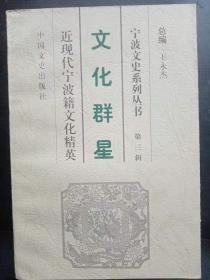 总编 王永杰
宁波文史系列丛书
第三辑
文化群星
近现代宁波籍文化精英
中国文史出版社